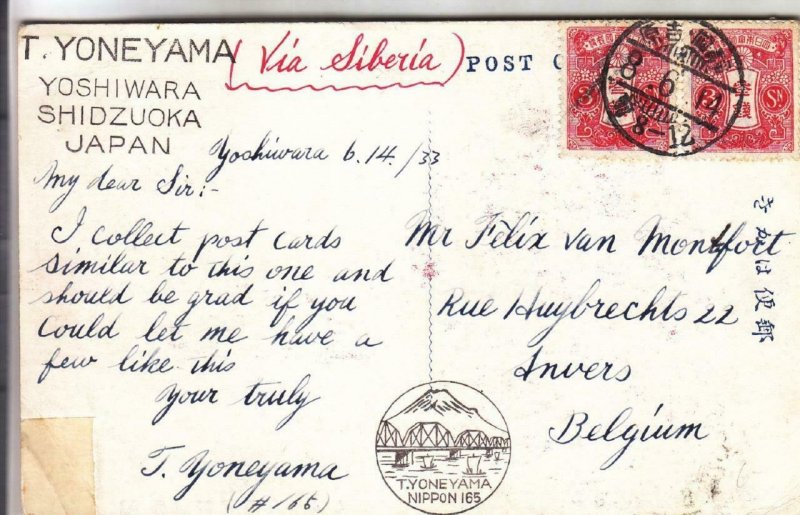 T. YONEYAMA
YOSHIWARA
SHIDZUOKA
JAPAN
(Via Siberia)
POST C
8 6 14
8-12
Yoshiwara 6.14./33
My dear Sir:-
I collect post cards
similar to this one and
should be grad if you
could let me have a
few like this
Your truly
T. Yoneyama
(#165)
Mr Félix van Montfort
Rue Huybrechts 22
Anvers
Belgium
きかは便郵
T.YONEYAMA
NIPPON 165